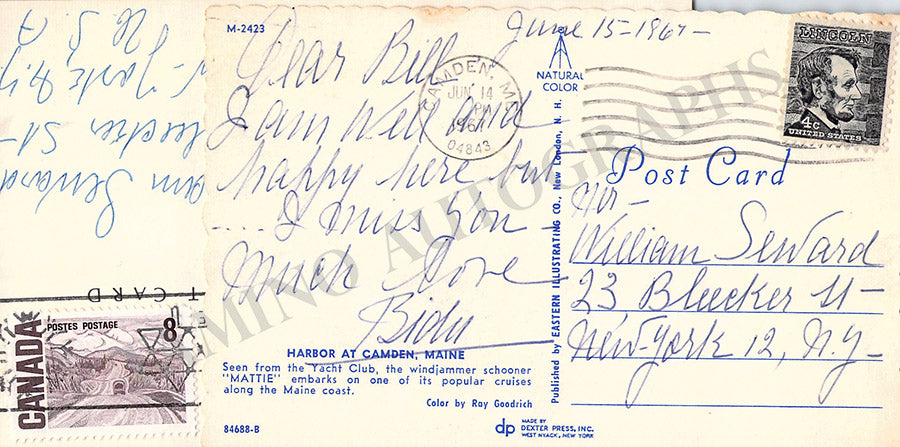 M-2423
June 15-1967-
Dear Bill
I am well and
happy here but
.... I miss you -
Much Love
Bidu
HARBOR AT CAMDEN, MAINE
Seen from the Yacht Club, the windjammer schooner
"MATTIE" embarks on one of its popular cruises
along the Maine coast.
Color by Ray Goodrich
84688-B
NATURAL
COLOR
Published by EASTERN ILLUSTRATING CO., New London, N. H.
CAMDEN, M
JUN 14
PM
1967
04843
LINCOLN
4c
UNITED STATES
Post Card
Mr-
William Seward
23, Bleecker St-
New-York 12, N.Y-
dp
MADE BY
DEXTER PRESS, INC.
WEST NYACK, NEW YORK
am Seward
leecker St-
York, N.Y.
U S A
T CARD
POSTES POSTAGE
8
CANADA
MINO AUTOGRAPHS